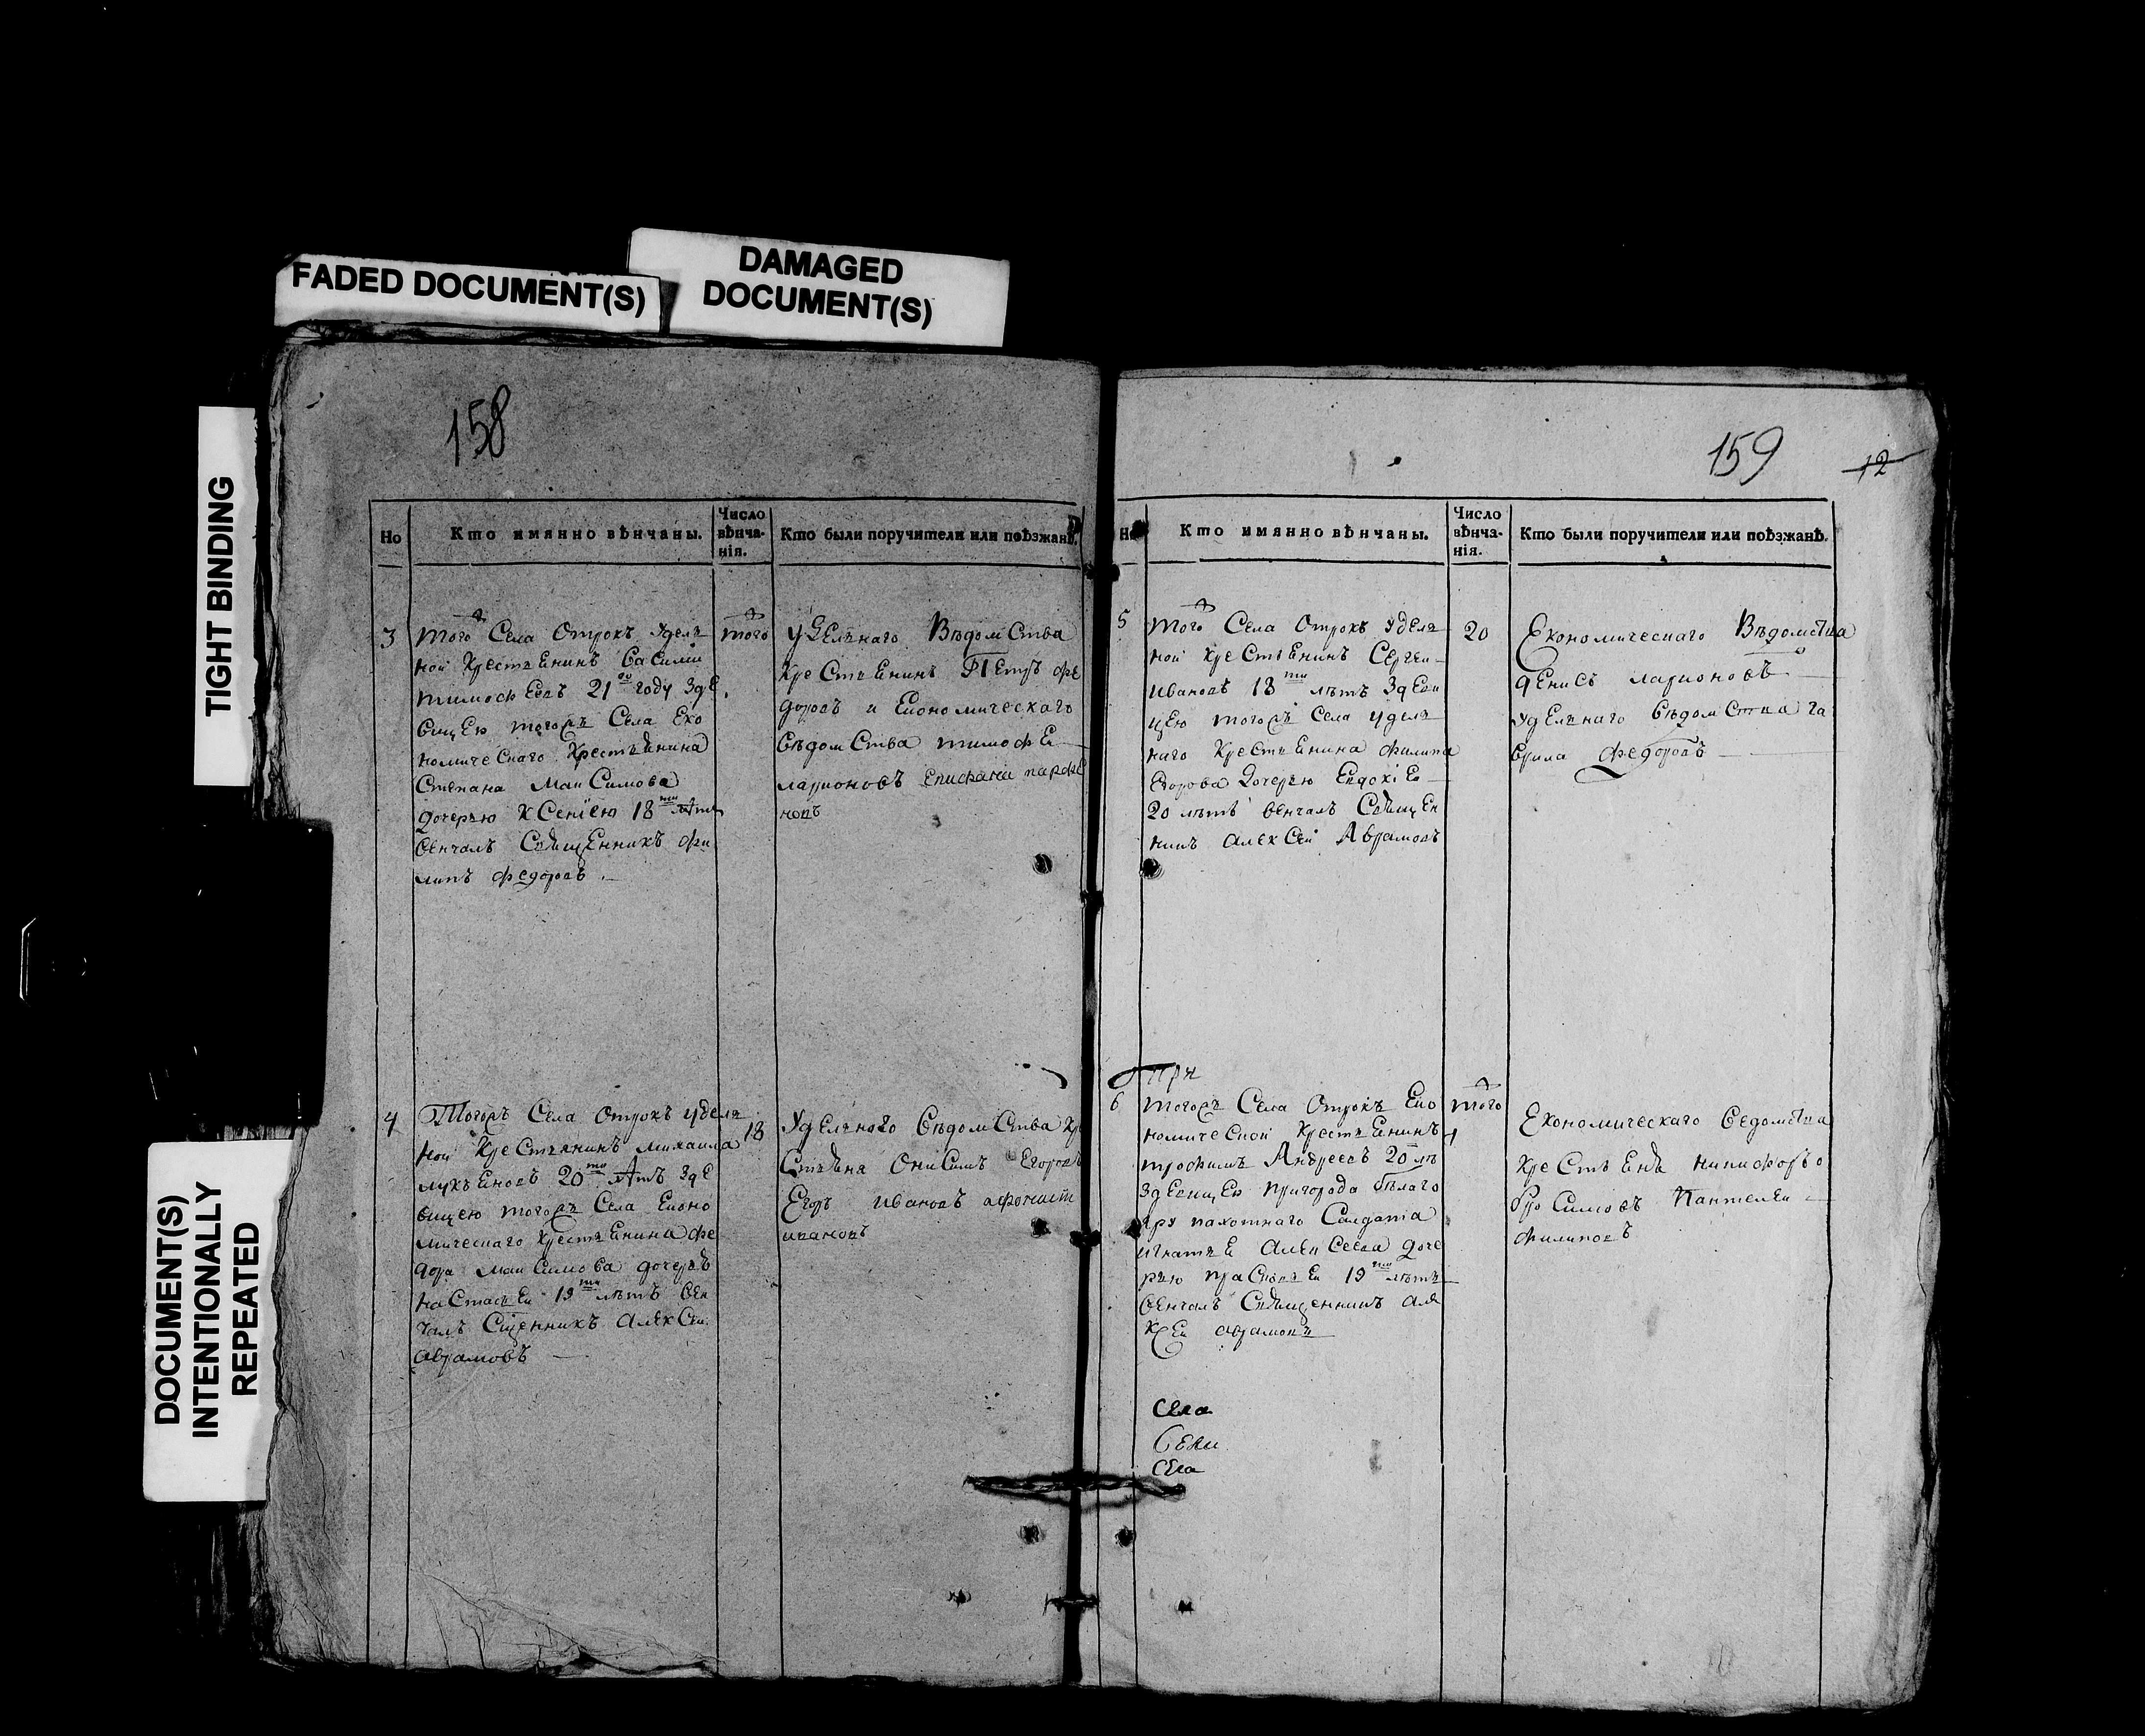 FADED DOCUMENT(S)
DAMAGED
DOCUMENT(S)
TIGHT BINDING
DOCUMENT(S)
INTENTIONALLY
REPEATED
158
Но
Кто имянно вѣнчаны.
Число
вѣнча-
нія.
Кто были поручители или поѣзжанѣ.
3
того Села Отрокъ Уделъ
ной Крестьенинъ Василии
тимофеевъ 21 году зде
вицею тогожъ Села Еко
номическаго Крестьенина
Степана Максимова
дочерью Ксениею 18 лѣтъ
венчалъ Священникъ Фи
липъ Федоровъ
того
уделнаго Вѣдомства
Крестьенинъ Петръ фе
доровъ и Економическаго
вѣдомства тимофеи
ларионовъ Епифани парфе
новъ
4
Тогожъ Села Отрокъ уделъ
ной Крестьянинъ михаила
лукъеновъ 20 лѣтъ зде
вицею тогожъ Села Еконо
мическаго Крестьенина фе
дора максимова дочеръ
настасъеи 19 лѣтъ вен
чалъ Сщенникъ Алексеи
аврамовъ
18
Уделънаго вѣдомства Кре
Онисимъ Егоровъ
Егоръ ивановъ афонасии
ивановъ
159
12
Но
Кто имянно вѣнчаны.
Число
вѣнча-
нія.
Кто были поручители или поѣзжанѣ.
5
того Села Отрокъ уделъ
ной Крестьенинъ Сергеи
ивановъ 18 лѣтъ здеви
цею тогожъ Села уделъ
наго Крестьенина филипа
Егорова дочерью Евдокіе
20 лѣтъ венчалъ Священ
никъ алексеи Аврамовъ
20
Економическаго Вѣдомства
денисъ ларионовъ
уделънаго вѣдомства га
врила федоровъ
при
6
тогожъ Села Отрокъ Еко
номической Крестьенинъ
трофимъ Андреевъ 20 лѣ
здевицеи пригорода бѣлаго
яру пахотнаго Салдата
игнатъе алексеева доче
рью прасковъеи 19 лѣтъ
венчалъ Священникъ але
ксеи аврамовъ
того
Економическаго ведомства
никифоръ
Пантелеи
филиповъ
Села
Села